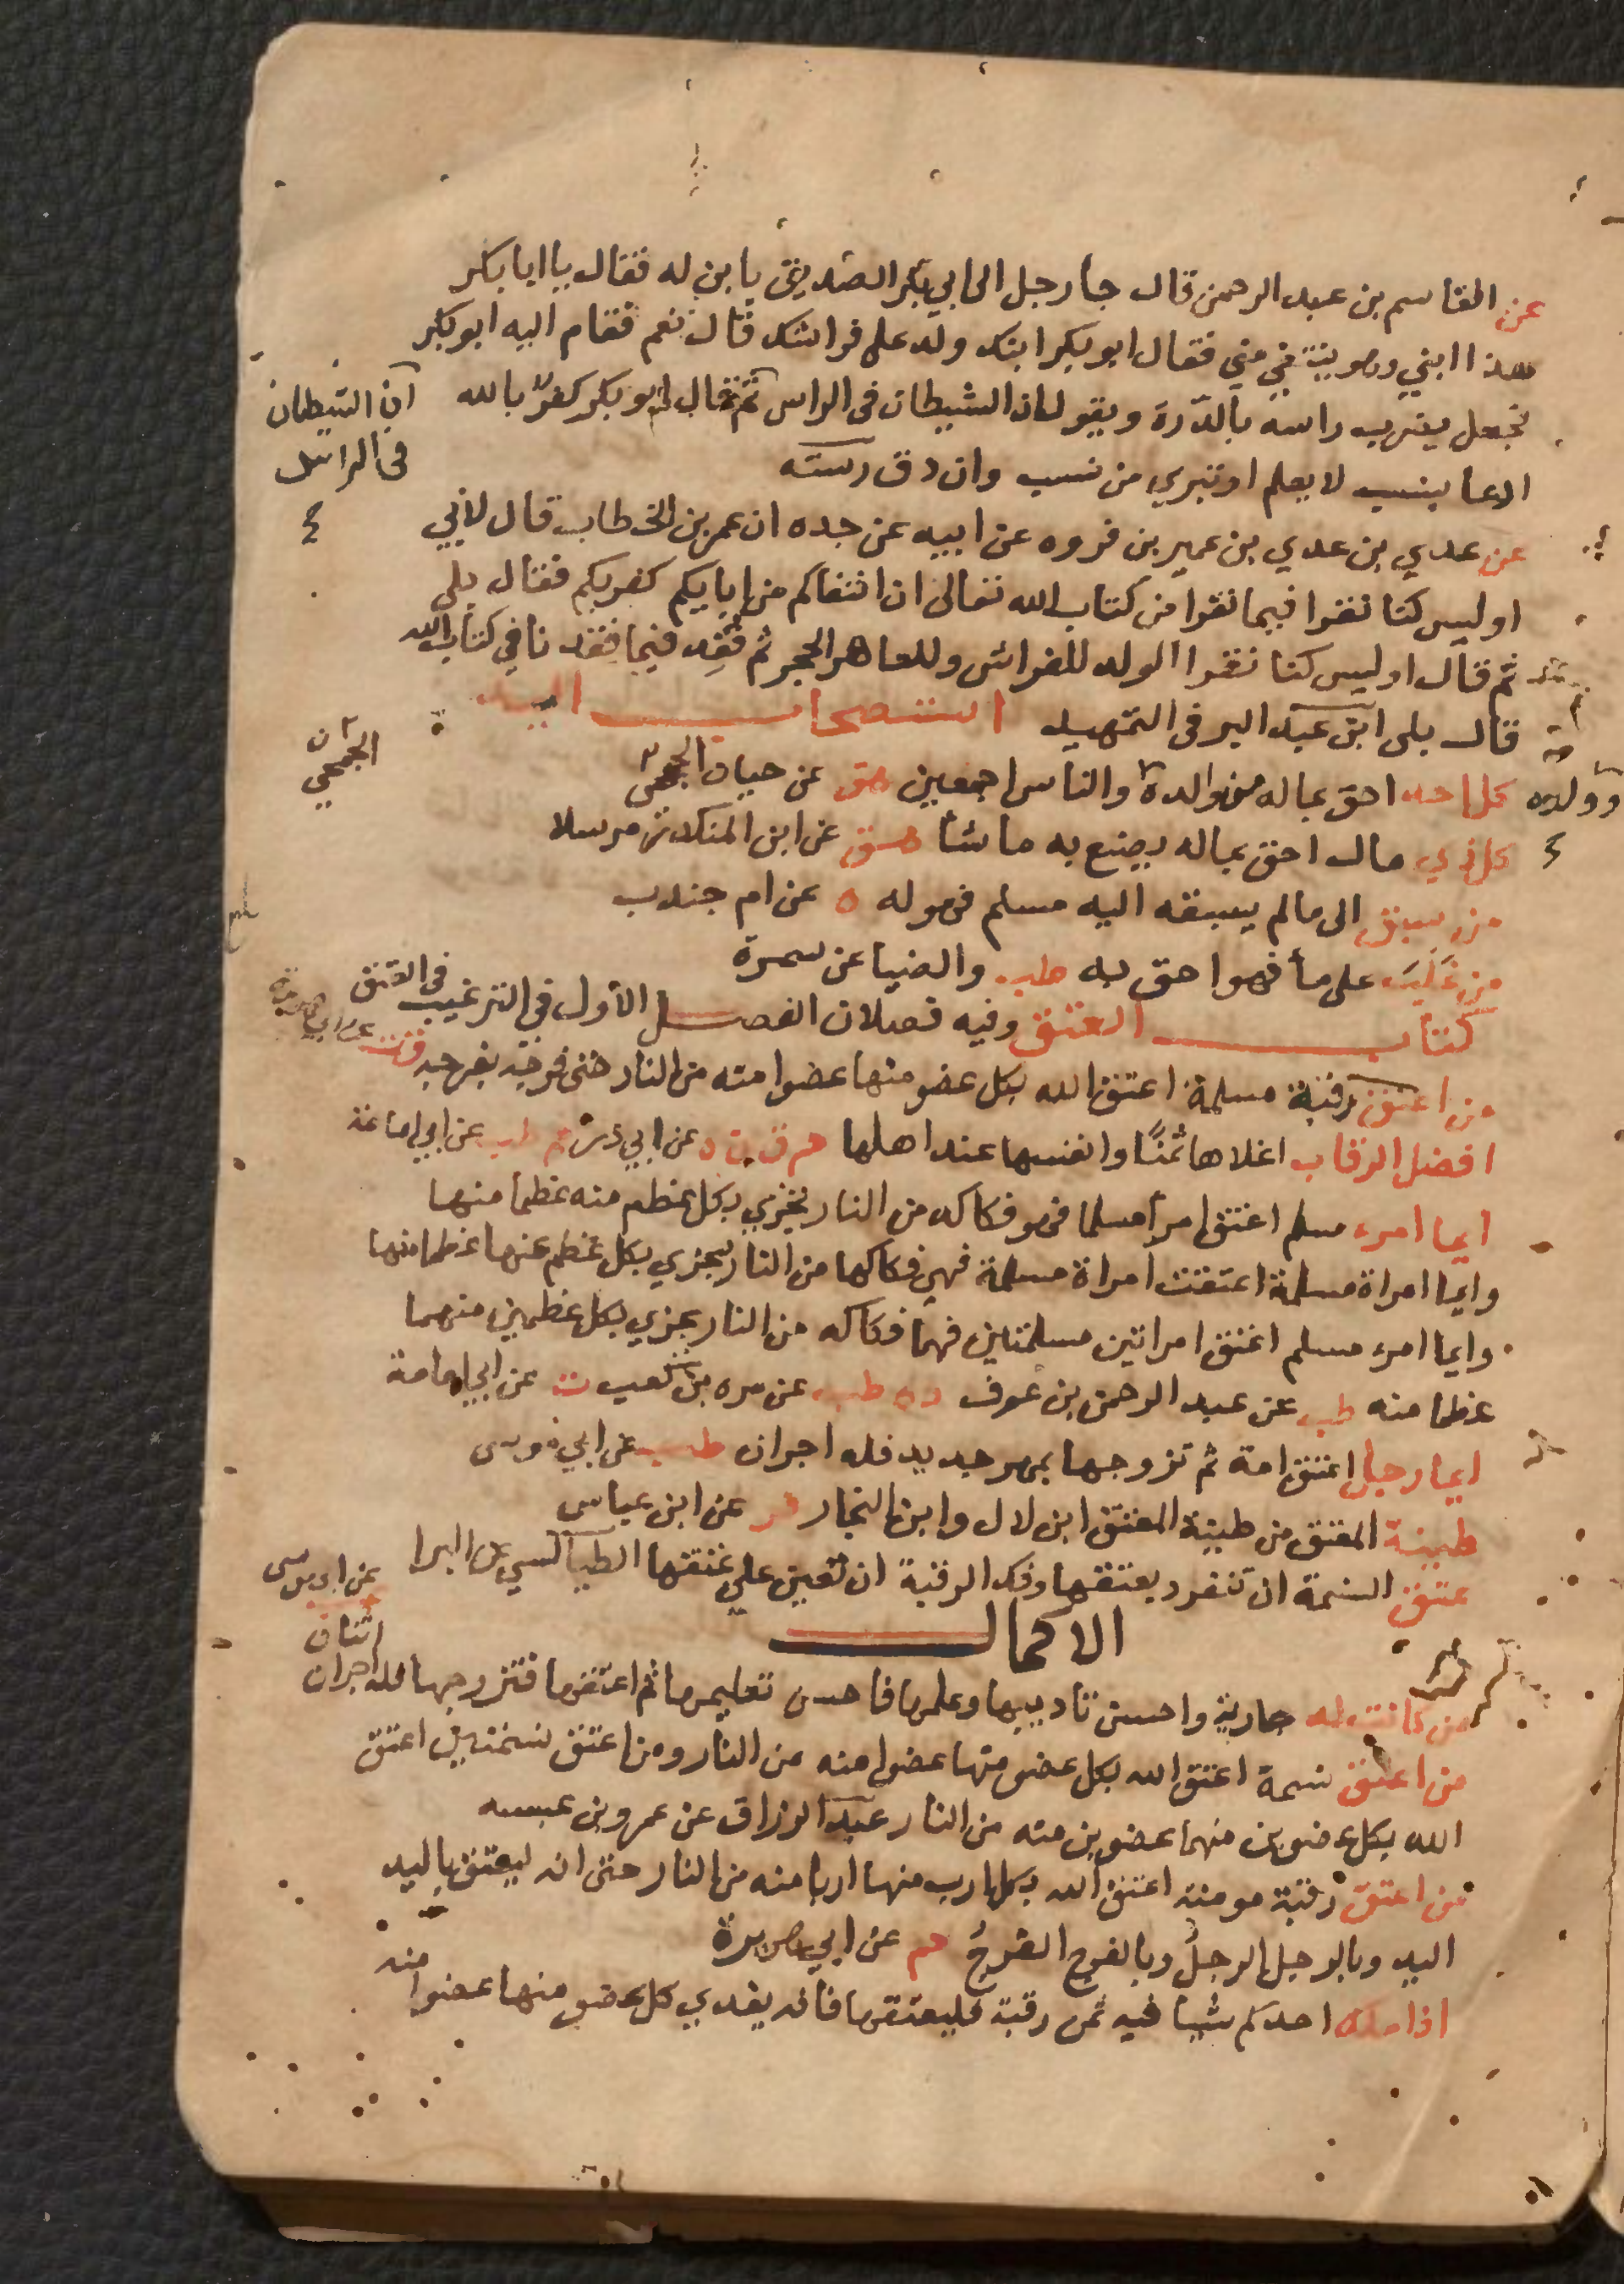 عن القاسم بن عبد الرحمن قال جا رجل الى ابي بكر الصديق يا بن له فقال يا ابا بكر
هذا ابني وهو ينتفي مني فقال ابو بكر ابنك ولد على فراشك قال نعم فقام اليه ابو بكر
فجعل يضرب راسه بالدرة ويقول ان الشيطان فى الراس ثم قال ابو بكر كفر بالله
ان الشيطان
فى الراس
ادعا بنسب لا يعلم او تبري من نسب وان دق رسته
عن عدي بن عدي بن عمير بن فروه عن ابيه عن جده ان عمر بن الخطاب قال لابي
اوليس كنا نقرا فيما نقرا من كتاب الله تعالى ان انتفاكم من ابايكم كفر بكم فقال بلى
ثم قال اوليس كنا نقرا الولد للفراش وللعاهر الحجر ثم فقد فيما فقدنا في كتاب الله
قال بلى ابن عبد البر فى التمهيد استصحاب اليد
وولده كل احد احق بماله من والده والناس اجمعين هق عن حبان الجمحي
الجمحي
كل ذي مال احق بماله يصنع به ما شا هق عن ابن المنكدر مرسلا
من سبق الى مالم يسبقه اليه مسلم فهو له د عن ام جندب
من غلب على ما فهو احق به طب والضيا عن سمرة
كتاب العتق وفيه فصلان الفصل الأول فى الترغيب فى العتق
من اعتق رقبة مسلمة اعتق الله بكل عضو منها عضوا منه من النار حتى فرجه بفرجه ق ت عن ابي هريرة
افضل الرقاب اغلاها ثمنًا وانفسها عند اهلها حم ق ن ه عن ابي ذر حم طب عن ابي امامة
ايما امرء مسلم اعتق امرأ مسلما فهو فكاكه من النار يجزي بكل عظم منه عظما منها
وايما امراة مسلمة اعتقت امراة مسلمة فهي فكاكها من النار يجزي بكل عظم عنها عظما منها
وايما امرء مسلم اعتق امراتين مسلمتين فهما فكاكه من النار يجزي بكل عظمين منهما
عظما منه طب عن عبد الرحمن بن عوف د ه طب عن مره بن كعب ت عن ابي امامة
ايما رجل اعتق امة ثم تزوجها بمهر جديد فله اجران طب عن ابي موسى
طينة المعتق من طينة المعتق ابن لال وابن النجار فر عن ابن عباس
عتق النسمة ان تنفرد بعتقها وفك الرقبة ان تعين علي عتقها الطيالسي عن البرا
الاكمال
من كانت له جارية واحسن تاديبها وعلمها فاحسن تعليمها ثم اعتقها فتزوجها فله اجران
اثنان
عن ابي موسى
من اعتق نسمة اعتق الله بكل عضو منها عضوا منه من النار ومن اعتق نسمتين اعتق
الله بكل عضوين منهما عضوين منه من النار عبد الرزاق عن عمرو بن عبسه
من اعتق رقبة مومنة اعتق الله بكل ارب منها اربا منه من النار حتى انه ليعتق باليد
اليد وبالرجل الرجل وبالفرج الفرج حم عن ابي هريرة
اذا ملك احدكم شيئا فيه ثمن رقبة فليعتقها فانه يفدي كل عضو منها عضوا منه